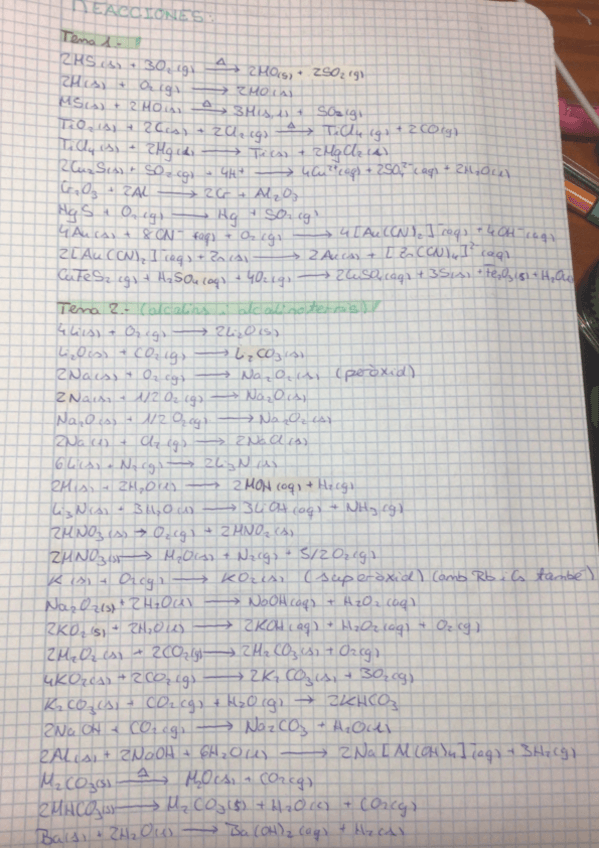 REACCIONES:
Tema 1.-
2MS(s) + 3O₂(g) —Δ→ 2MO(s) + 2SO₂(g)
2M(s) + O₂(g) → 2MO(s)
MS(s) + 2MO(s) —Δ→ 3M(s) + SO₂(g)
TiO₂(s) + 2C(s) + 2Cl₂(g) —Δ→ TiCl₄(g) + 2CO(g)
TiCl₄(s) + 2Mg(s) → Ti(s) + 2MgCl₂(s)
2Cu₂S(s) + SO₂(g) + 4H⁺ → 4Cu²⁺(aq) + 2SO₄²⁻(aq) + 2H₂O(l)
Cr₂O₃ + 2Al → 2Cr + Al₂O₃
HgS + O₂(g) → Hg + SO₂(g)
4Au(s) + 8CN⁻(aq) + O₂(g) → 4[Au(CN)₂]⁻(aq) + 4OH⁻(aq)
2[Au(CN)₂]⁻(aq) + Zn(s) → 2Au(s) + [Zn(CN)₄]²⁻(aq)
CuFeS₂(g) + H₂SO₄(aq) + 4O₂(g) → 2CuSO₄(aq) + 3S(s) + Fe₂O₃(s) + H₂O(l)
Tema 2.- (alcalins i alcalinoterris)
4Li(s) + O₂(g) → 2Li₂O(s)
Li₂O(s) + CO₂(g) → Li₂CO₃(s)
2Na(s) + O₂(g) → Na₂O₂(s) (peròxid)
2Na(s) + 1/2O₂(g) → Na₂O(s)
Na₂O(s) + 1/2O₂(g) → Na₂O₂(s)
2Na(s) + Cl₂(g) → 2NaCl(s)
6Li(s) + N₂(g) → 2Li₃N(s)
2M(s) + 2H₂O(l) → 2MOH(aq) + H₂(g)
Li₃N(s) + 3H₂O(l) → 3LiOH(aq) + NH₃(g)
2MNO₃(s) → O₂(g) + 2MNO₂(s)
2MNO₃(s) → M₂O(s) + N₂(g) + 5/2O₂(g)
K(s) + O₂(g) → KO₂(s) (superòxid) (amb Rb i Cs també)
Na₂O₂(s) + 2H₂O(l) → NaOH(aq) + H₂O₂(aq)
2KO₂(s) + 2H₂O(l) → 2KOH(aq) + H₂O₂(aq) + O₂(g)
2M₂O₂(s) + 2CO₂(g) → 2M₂CO₃(s) + O₂(g)
4KO₂(s) + 2CO₂(g) → 2K₂CO₃(s) + 3O₂(g)
K₂CO₃(s) + CO₂(g) + H₂O(g) → 2KHCO₃
2NaOH + CO₂(g) → Na₂CO₃ + H₂O(l)
2Al(s) + 2NaOH + 6H₂O(l) → 2Na[Al(OH)₄]⁻(aq) + 3H₂(g)
M₂CO₃(s) —Δ→ M₂O(s) + CO₂(g)
2MHCO₃(s) → M₂CO₃(s) + H₂O(l) + CO₂(g)
Ba(s) + 2H₂O(l) → Ba(OH)₂(aq) + H₂(s)